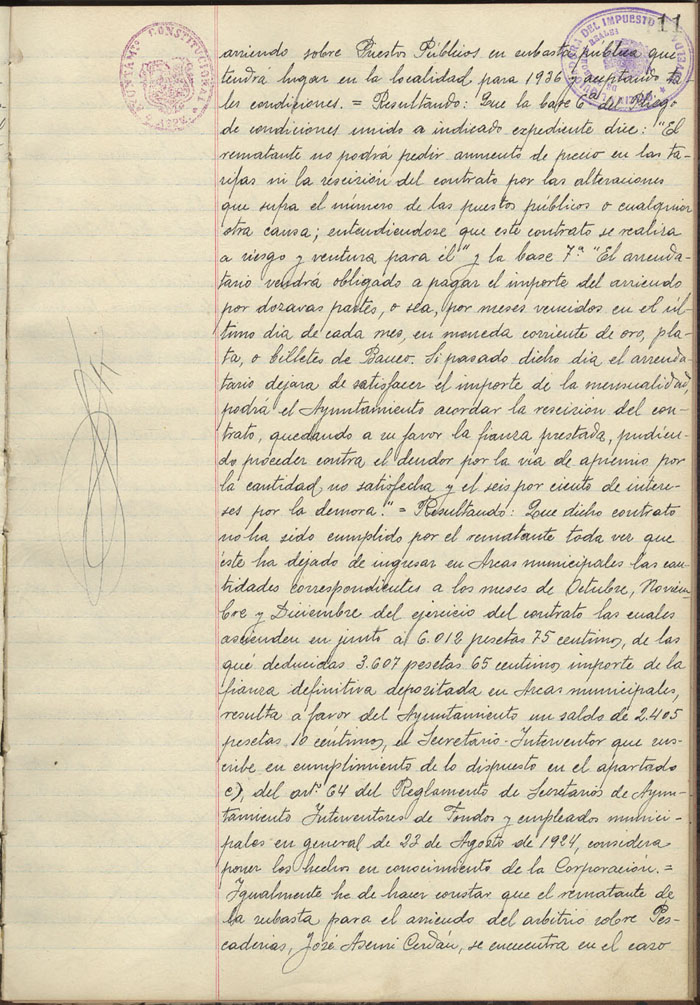 11
AYUNTAMTO CONSTITUCIONAL
ASPE
DEL IMPUESTO
REALES
arriendo sobre Puestos Públicos en subasta pública que
tendrá lugar en la localidad para 1936 y aceptando ta-
les condiciones. = Resultando: Que la base 6ª del Pliego
de condiciones unido a indicado expediente dice: "El
rematante no podrá pedir aumento de precio en las ta-
rifas ni la rescisión del contrato por las alteraciones
que sufra el número de las puestos públicos o cualquier
otra causa; entendiendose que este contrato se realiza
a riesgo y ventura para él" y la base 7ª "El arrenda-
tario vendrá obligado a pagar el importe del arriendo
por dozavas partes, o sea, por meses vencidos en el úl-
timo dia de cada mes, en moneda corriente de oro, pla-
ta, o billetes de Banco. Si pasado dicho dia el arrenda-
tario dejara de satisfacer el importe de la mensualidad,
podrá el Ayuntamiento acordar la rescisión del con-
trato, quedando a su favor la fianza prestada, pudien-
do proceder contra el deudor por la via de apremio por
la cantidad no satisfecha y el seis por ciento de intere-
ses por la demora." = Resultando: Que dicho contrato
no ha sido cumplido por el rematante toda vez que
éste ha dejado de ingresar en Arcas municipales las can-
tidades correspondientes a los meses de Octubre, Noviem-
bre y Diciembre del ejercicio del contrato las cuales
ascienden en junto a 6.012 pesetas 75 centimos, de las
que deducidas 3.607 pesetas 65 centimos importe de la
fianza definitiva depositada en Arcas municipales,
resulta a favor del Ayuntamiento un saldo de 2.405
pesetas 10 céntimos, el Secretario-Interventor que sus-
cribe en cumplimiento de lo dispuesto en el apartado
e), del artº 64 del Reglamento de Secretarios de Ayun-
tamiento Interventores de Fondos y empleados munici-
pales en general de 23 de Agosto de 1924, considera
poner los hechos en conocimiento de la Corporación. =
Igualmente he de hacer constar que el rematante de
la subasta para el arriendo del arbitrio sobre Pes-
caderias, José Asensi Cerdán, se encuentra en el caso